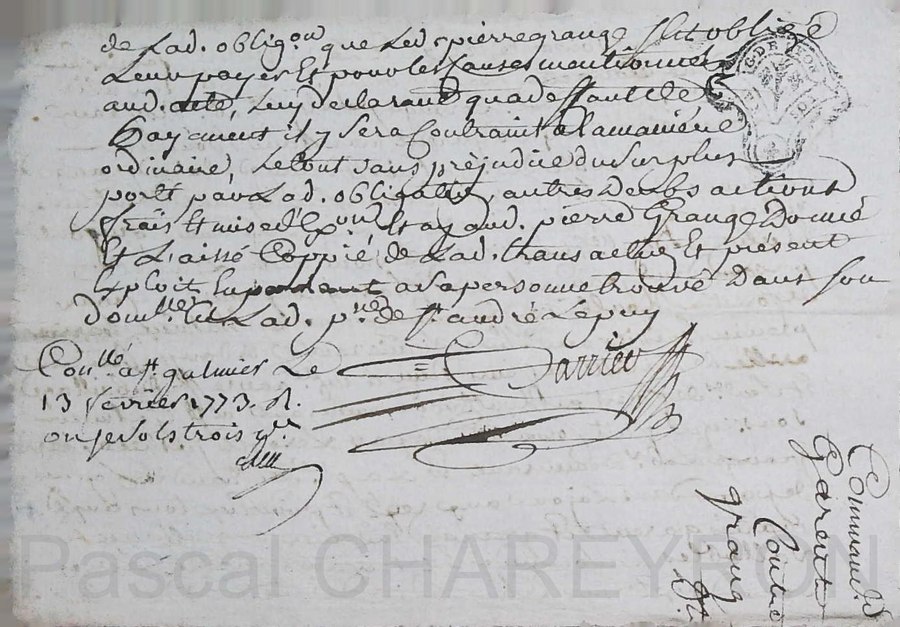 de Lad. obligon que Led. pierre grange sest obligé
Leur payer Et pour les causes mentionnés
aud. acte, Luy declarant qua deffaut de
payement il y sera Contraint a la maniere
ordinaire, Le tout sans prejudice du surplus
porté par Lad. obligation, autres debs actions
frais Et mise dExon Et ay aud. pierre Grange Donné
Et Laissé Coppié de Lad. transaction Et présent
Exploit En parlant a Sa personne trouvé Dans son
domlle En Lad. psse de st. andré Le puy
Conllé a st. galmier Le
13 fevrier 1773. R.
onze sols trois drs
Barrieu
Command.
Garentie
Contre
grange
Pascal CHAREYRON